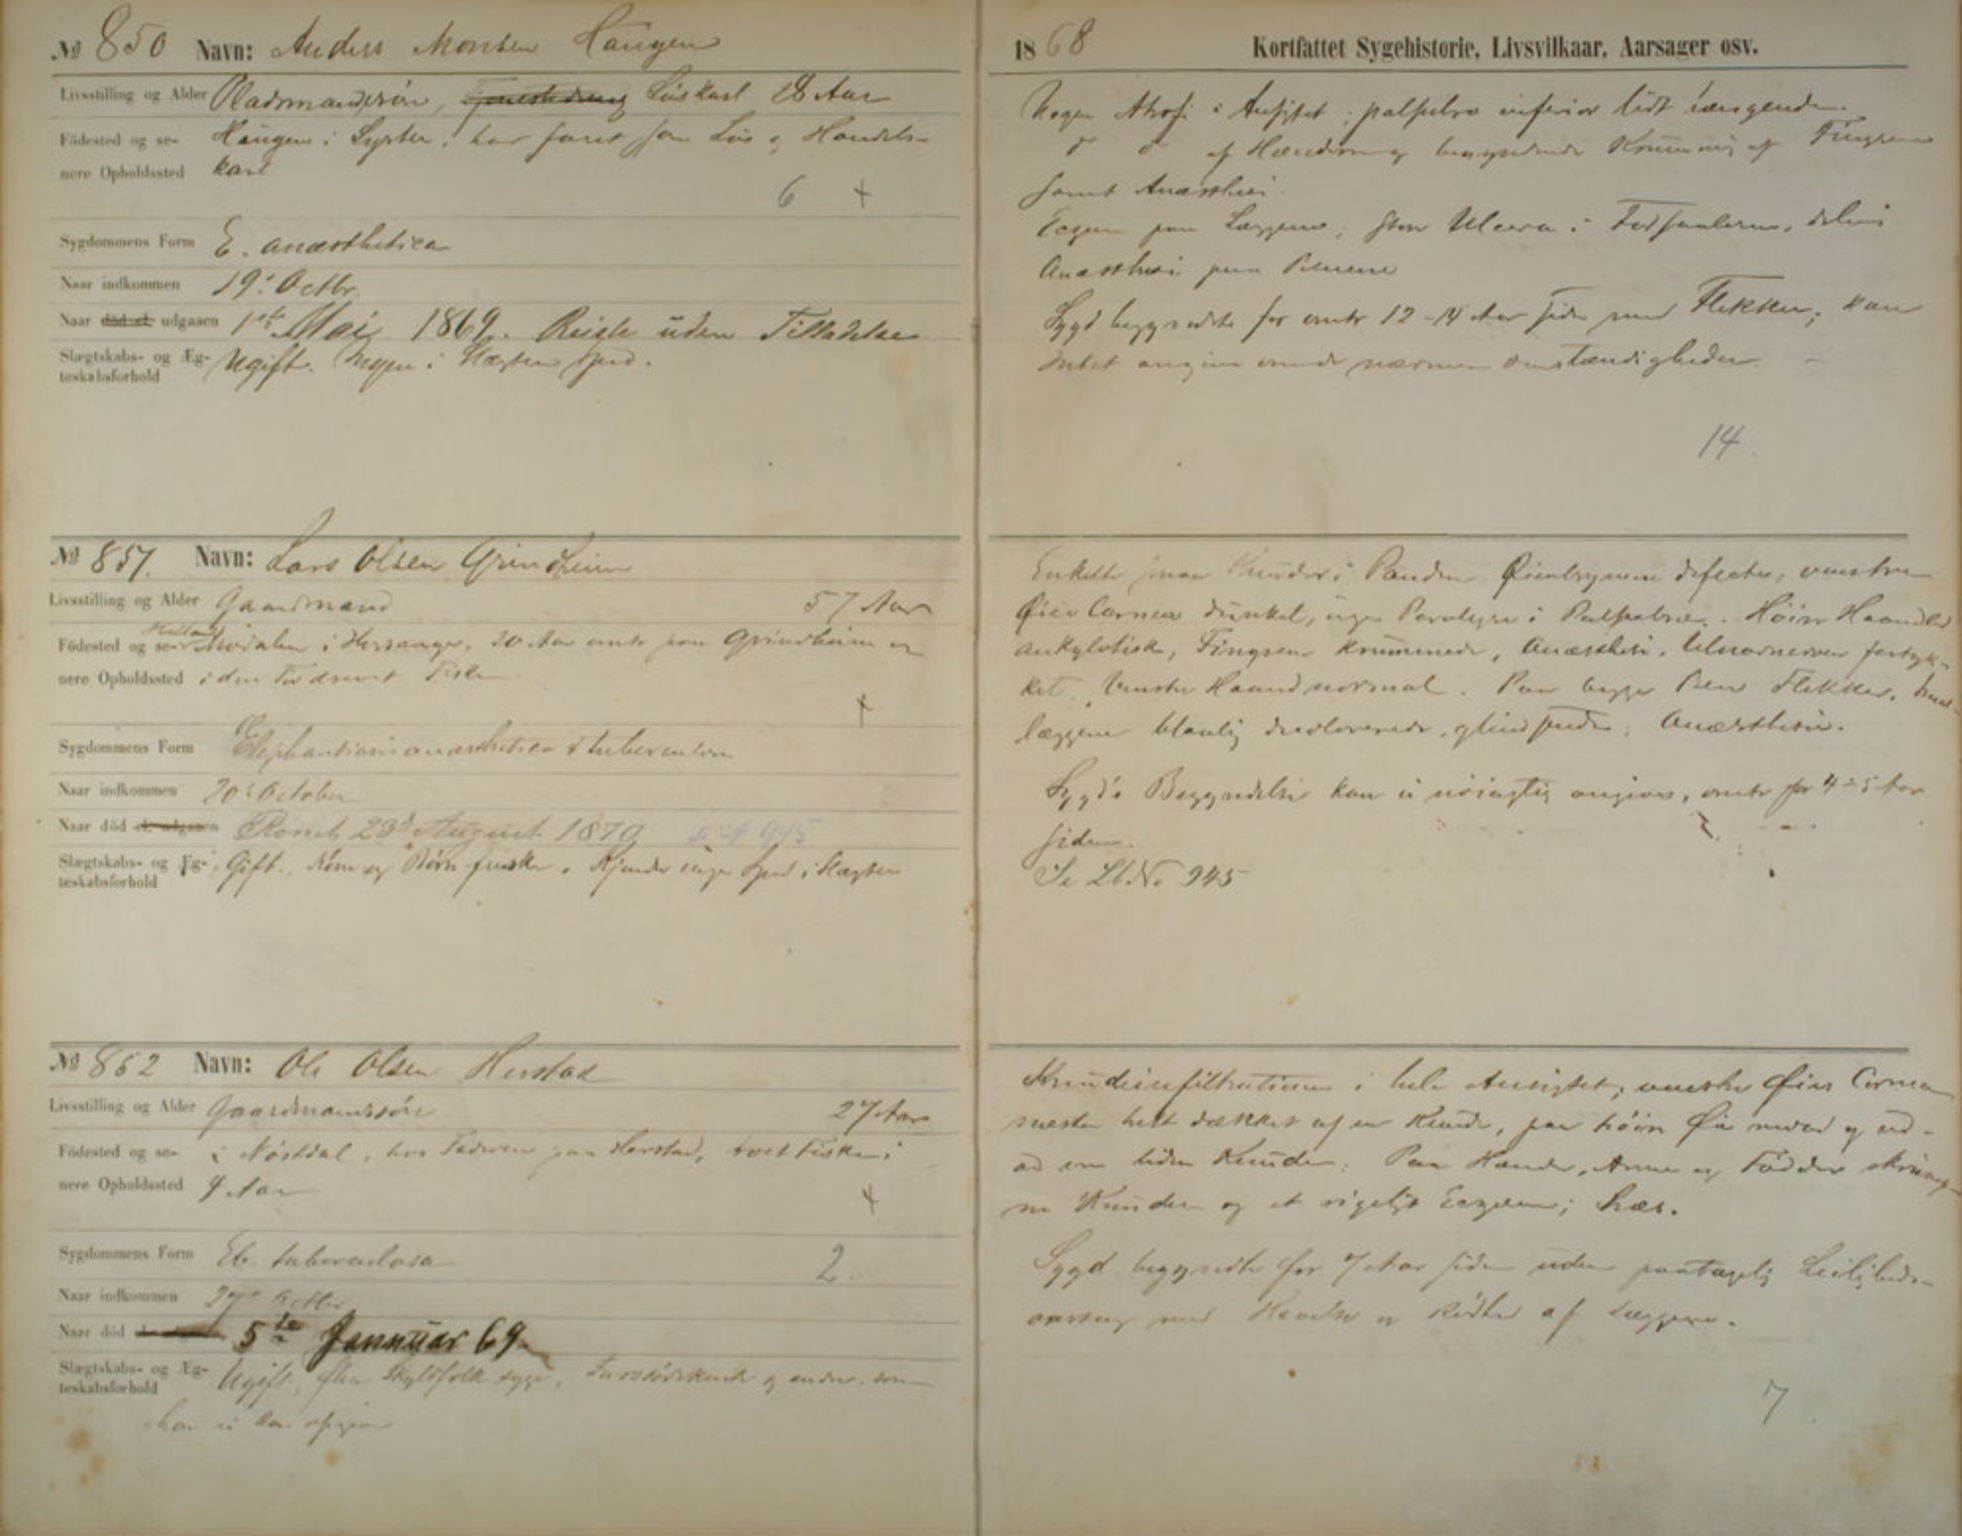 № 850 Navn: Anders Monsen Haugen
Livsstilling og Alder Pladsmandssøn, Løskarl 28 Aar
Födested og se- Haugen i Lyster; har faret som Løs og Handels-
nere Opholdssted karl
6 +
Sygdommens Form E. anæsthetica
Naar indkommen 19' Octbr.
Naar död el. udgaaen 1ste Mai 1869. Reiste uden Tilladelse
Slægtskabs- og Æg- Ugift. Ingen i Slægten sped.
teskabsforhold
№ 851. Navn: Lars Olsen Grindheim
Livsstilling og Alder Gaardmand 57 Aar
Födested og se- i Hosanger, 20 Aar omtr paa Grindheim
nere Opholdssted i den Tid drevet Fiske
+
Sygdommens Form Elephantiasis anæsthetica & tuberculosa
Naar indkommen 20' October
Naar död el. udgaaen Rømt 23d August 1870 945
Slægtskabs- og Æg- Gift. Kone og Børn friske. Kjender ingen sped i Slægten
teskabsforhold
№ 852 Navn: Ole Olsen Herstad
Livsstilling og Alder Gaardmandssøn 27 Aar
Födested og se- i hos Faderen paa Herstad,
nere Opholdssted Aar
+
Sygdommens Form El. tuberculosa 2.
Naar indkommen Octbr
Naar död 5te Januar 69
Slægtskabs- og Æg- Ugift, flere Skyldfolk syge, og andre, som
teskabsforhold
han ei kan opgive
1868 Kortfattet Sygehistorie, Livsvilkaar, Aarsager osv.
Nogen Atrofi i Ansigtet; palpebra inferior lidt hængende.
do do af Hænderne og begyndende Krumning af Fingrene
samt Anæsthesi.
Eczem paa Læggene; store Ulcera i Fodsaalerne,
Anæsthesi paa Benene
Sygd begyndte for omtr 12-14 Aar siden med Flekker; kan
intet angive om de nærmere Omstændigheder. -
14
Enkelte smaa Knuder i Panden. Øienbrynene defecte, venstre
Øies Cornea dunkel, ingen Paralyse i Palpebræ. Høire Haandled
ankylotisk, Fingrene krummede, Anæsthesi. Ulnarnerven fortyk-
ket. Venstre Haand normal. Paa begge Ben Flekker.
læggene blaalig discolorerede, glindsende; Anæsthesi.
Sygd's Begyndelse kan ei nöiagtig angives, omtr for 4 à 5 Aar
siden.
Se Lb.No 945
Knudeinfiltrationen i hele Ansigtet; venstre Øies Cornea
næsten helt dækket af en Knude, paa höire Øie nedad og ud-
ad en liden Knude. Paa Hænder, Arme og Födder
ne Knuder og et rigeligt Eczem; hæs.
Sygd. begyndte for 7 Aar siden uden paatagelig Leiligheds-
aarsag med Hævelse og Rödhed af Læggene.
7